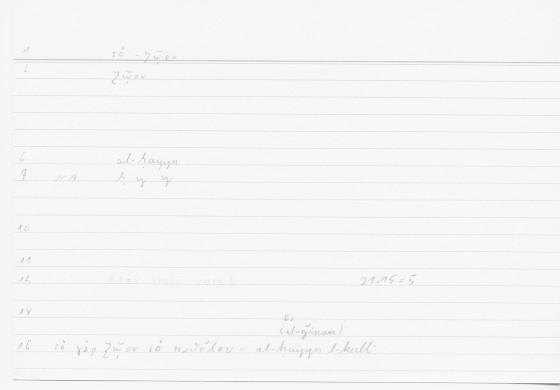 1 τὸ ζῷον
2 ζῷον
6 al-ḥayyu
7 NA ḥ y y
10
11
12 2115 = 5
14
(al-ǧinan)
16 τὸ γὰρ ζῷον τὸ καθόλου = al-ḥayyu l-kullī